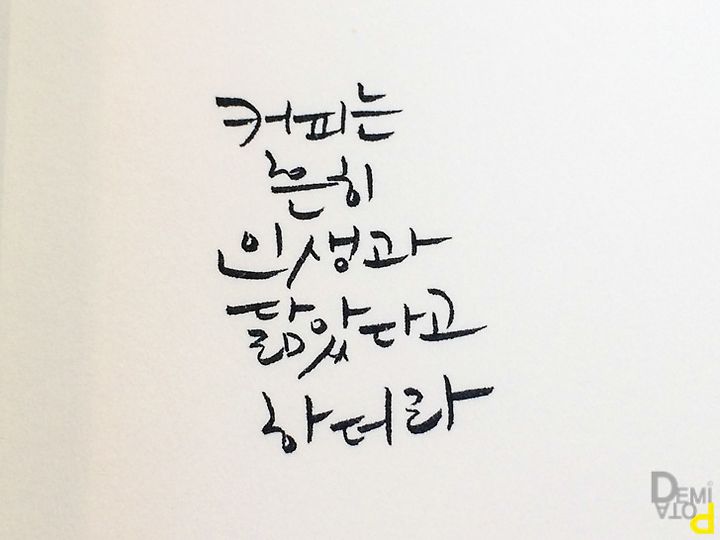 커피는
흔히
인생과
닮았다고
하더라
DEMI
POTA